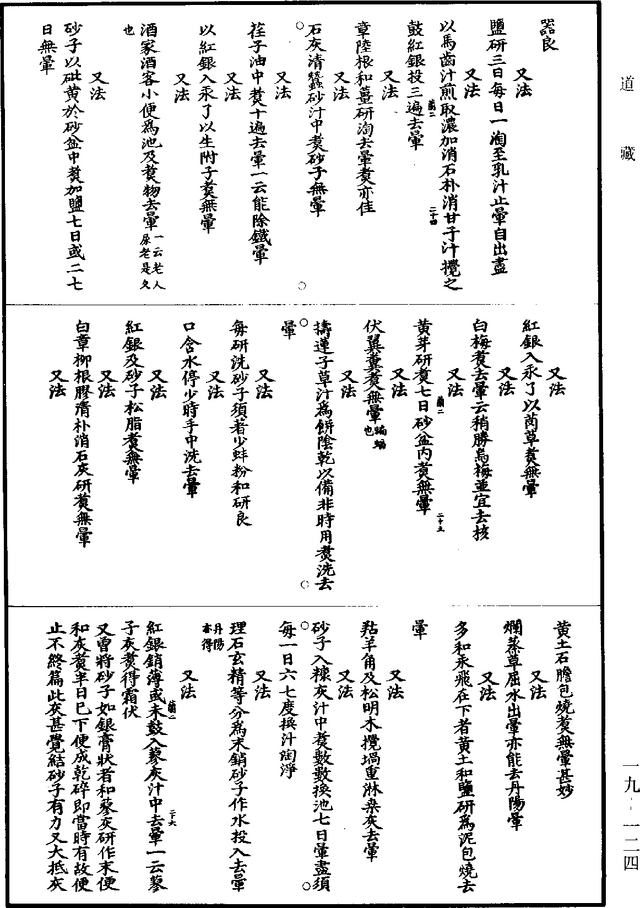 道藏
器良
又法
鹽研三日每日一淘至乳汁止暈自出盡
又法
以馬齒汁煎取濃加消石朴消甘子汁攪之
鼓紅銀投三遍去暈
又法
章陸根和薑研淘去暈煑亦佳
又法
石灰清蠶砂汁中煑砂子無暈
又法
荏子油中煑十遍去暈一云能除鐵暈
又法
以紅銀入汞了以生附子煑無暈
又法
酒家酒客小便為池及煑物去暈一云老人尿老是久也
又法
砂子以砒黄於砂盆中煑加鹽七日或二七
日無暈
又法
紅銀入汞了以茵草煑無暈
又法
白梅煑去暈云稍勝烏梅並宜去核
又法
黄芽研煑七日砂盆内煑無暈
二十五
又法
伏翼糞煑無暈蝙蝠也
又法
擣蓮子草汁為餅陰乾以備非時用煑洗去
暈
又法
每研洗砂子須着少蚌粉和研良
又法
口含水停少時手中洗去暈
又法
紅銀及砂子松脂煑無暈
又法
白章柳根膠清朴消石灰研煑無暈
又法
黄土石膽包燒煑無暈甚妙
又法
爛蒸草屈水出暈亦能去丹陽暈
又法
多和汞飛在下者黄土和鹽研為泥包燒去
暈
又法
羖羊角及松明木攪堝重淋桑灰去暈
又法
砂子入糠灰汁中煑數數換池七日暈盡須
每一日六七度換汁淘淨
又法
理石玄精等分為末銷砂子作水投入去暈
丹陽亦得
又法
紅銀銷薄或未鼓入蓼灰汁中去暈一云蓼
二十六
子灰煑得霜伏
又曾將砂子如銀膏狀者和蓼灰研作末便
和灰煑半日巳下便成乾碎即當時有故便
止不終篇此灰甚覺結砂子有力又大抵灰
一九-一二四